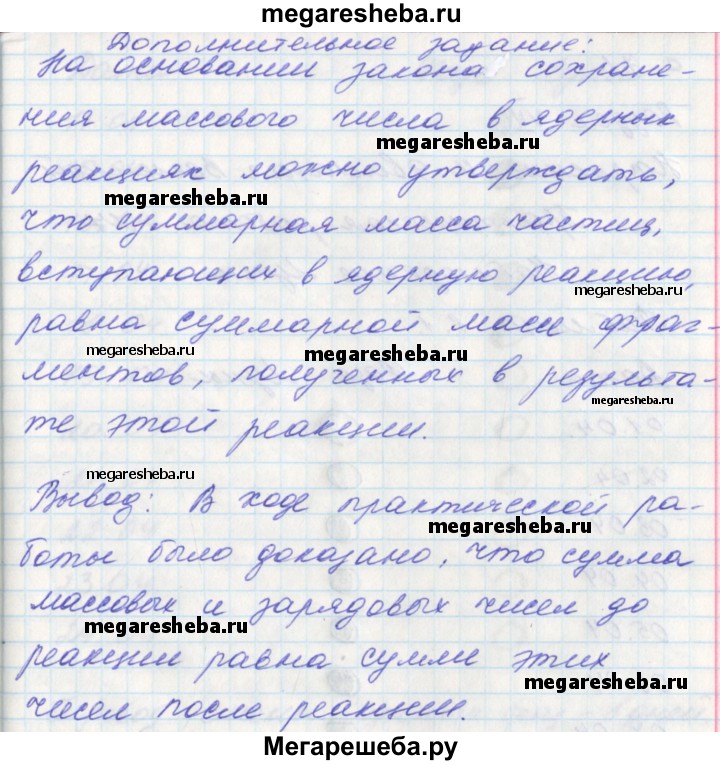 megaresheba.ru
Дополнительное задание:
На основании закона сохране-
ния массового числа в ядерных
megaresheba.ru
реакциях можно утверждать,
megaresheba.ru
что суммарная масса частиц,
вступающих в ядерную реакцию,
megaresheba.ru
равна суммарной массе фраг-
megaresheba.ru
megaresheba.ru
ментов, полученных в результа-
megaresheba.ru
те этой реакции.
megaresheba.ru
Вывод: В ходе практической ра-
megaresheba.ru
боты было доказано, что сумма
массовых и зарядовых чисел до
megaresheba.ru
реакции равна сумми этих
megaresheba.ru
чисел после реакции.
Мегарешеба.ру